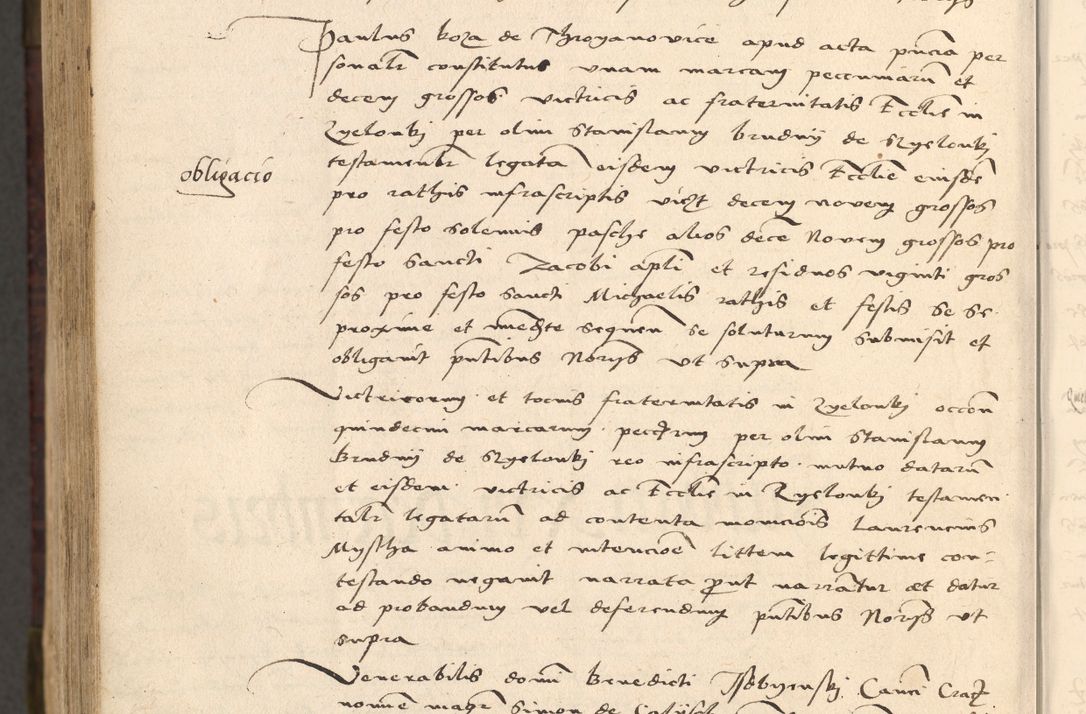 Paulus koza de Throyanovice apud acta pñcia per
sonalr constitutus unam marcam peccuniarũ et
decem grossos victricis ac fraternitatis Ecclie in
Zyelonky per olim Stanislaum brudnij de Zyelonky
testamentalr legata eisdem victricis Ecclie eiusdẽ
obligacio
pro rathis infrascriptis vicz decem novem grossos
pro festo solennis pasche alios decẽ Novem grossos pro
festo sancti Iacobi apli et residuos viginti gros
sos pro festo sancti Michaelis rathis et festis se se
proxime et imẽdte sequen se soluturum submisit et
obligavit pñtibus Norijs ut supra
Victricorum et tocius fraternitatis in Zyelonky occõn
quindecim marcarum pecc̃rum per olim Stanislaum
Brudnij de Zyelonky reo infrascripto mutuo datarũ
et eisdem victricis ac Ecclie in Zyelonky testamen
talr legatarũ ad contenta monicõis Laurencius
Myscha animo et intencioẽ littem legittime con=
testando negavit narrata prout narrãtur et datur
ad probandum vel deferendum pñtibus Norijs ut
supra
Venerabilis domi Benedicti Isdbijenski Canci Cracz
noĩe magr Simon de